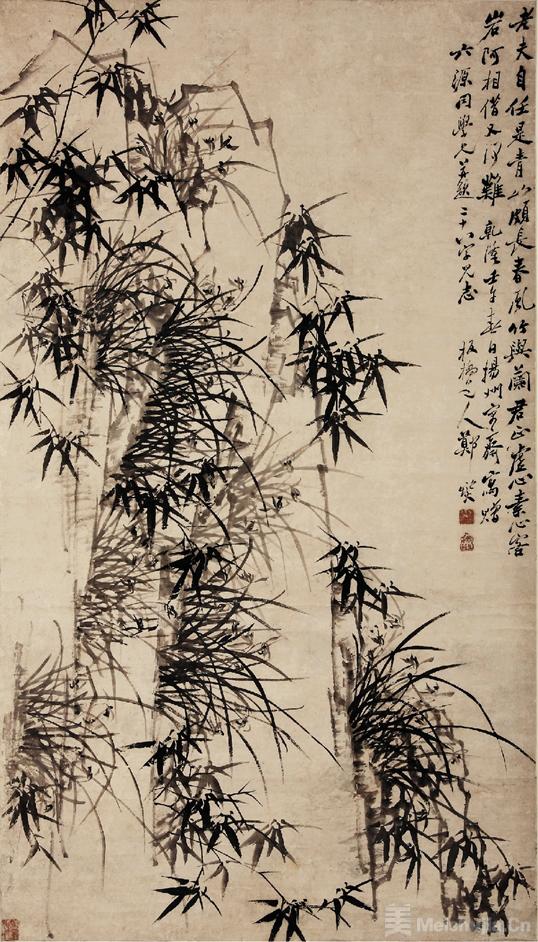 老夫自任是青山頗長春風竹與蘭君正虛心素心客
岩阿相借又何難 乾隆壬午春日揚州寓齋寫贈
六源同學兄并題二十八字見志 板橋老人鄭燮
美